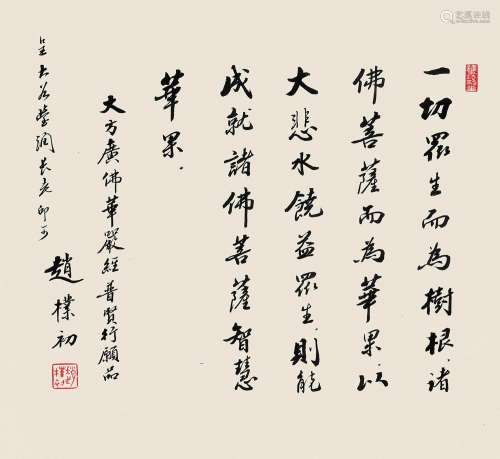 一切眾生而為樹根、諸
佛菩薩而為華果、以
大悲水饒益眾生、則能
成就諸佛菩薩智慧
華果.
大方廣佛華嚴經普賢行願品
呈大谷瑩潤長老印可
趙樸初